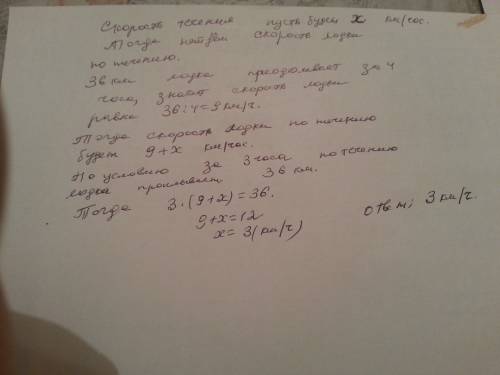 Скорость течения пусть будет х км/час.
Тогда найдём скорость лодки
по течению.
36 км лодка преодолевает за 4
часа, значит скорость лодки
равна 36:4=9 км/ч.
Тогда скорость лодки по течению
будет 9+х км/час.
По условию за 3 часа по течению
лодка проплывает 36 км.
Тогда 3·(9+х)=36.
9+х=12
х=3(км/ч)
Ответ: 3 км/ч.